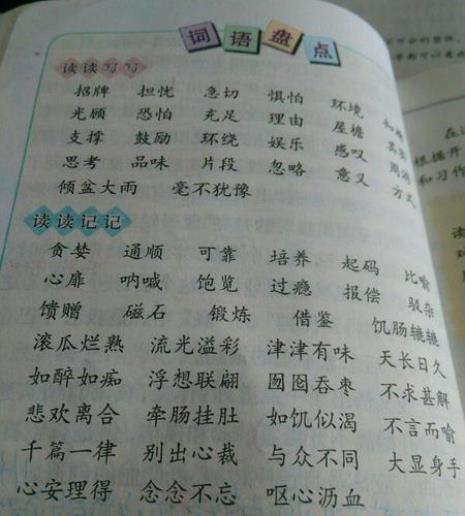 词语盘点
读读写写
招牌 担忧 急切 惧怕 环境
光顾 恐怕 充足 理由 屋檐
支撑 鼓励 环绕 娱乐 感叹 周游
思考 品味 片段 忽略 意义 方式
倾盆大雨 毫不犹豫
读读记记
贪婪 通顺 可靠 培养 起码 比喻
心扉 呐喊 饱览 过瘾 报偿 驳杂
馈赠 磁石 锻炼 借鉴 饥肠辘辘
滚瓜烂熟 流光溢彩 津津有味 天长日久
如醉如痴 浮想联翩 囫囵吞枣 不求甚解
悲欢离合 牵肠挂肚 如饥似渴 不言而喻
千篇一律 别出心裁 与众不同 大显身手
心安理得 念念不忘 呕心沥血
根据开
和习作